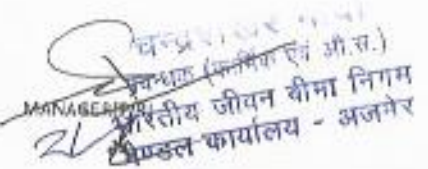 चन्द्र शेखर
प्रबन्धक (कार्मिक एवं औ.स.)
MANAGER
भारतीय जीवन बीमा निगम
मण्डल कार्यालय - अजमेर